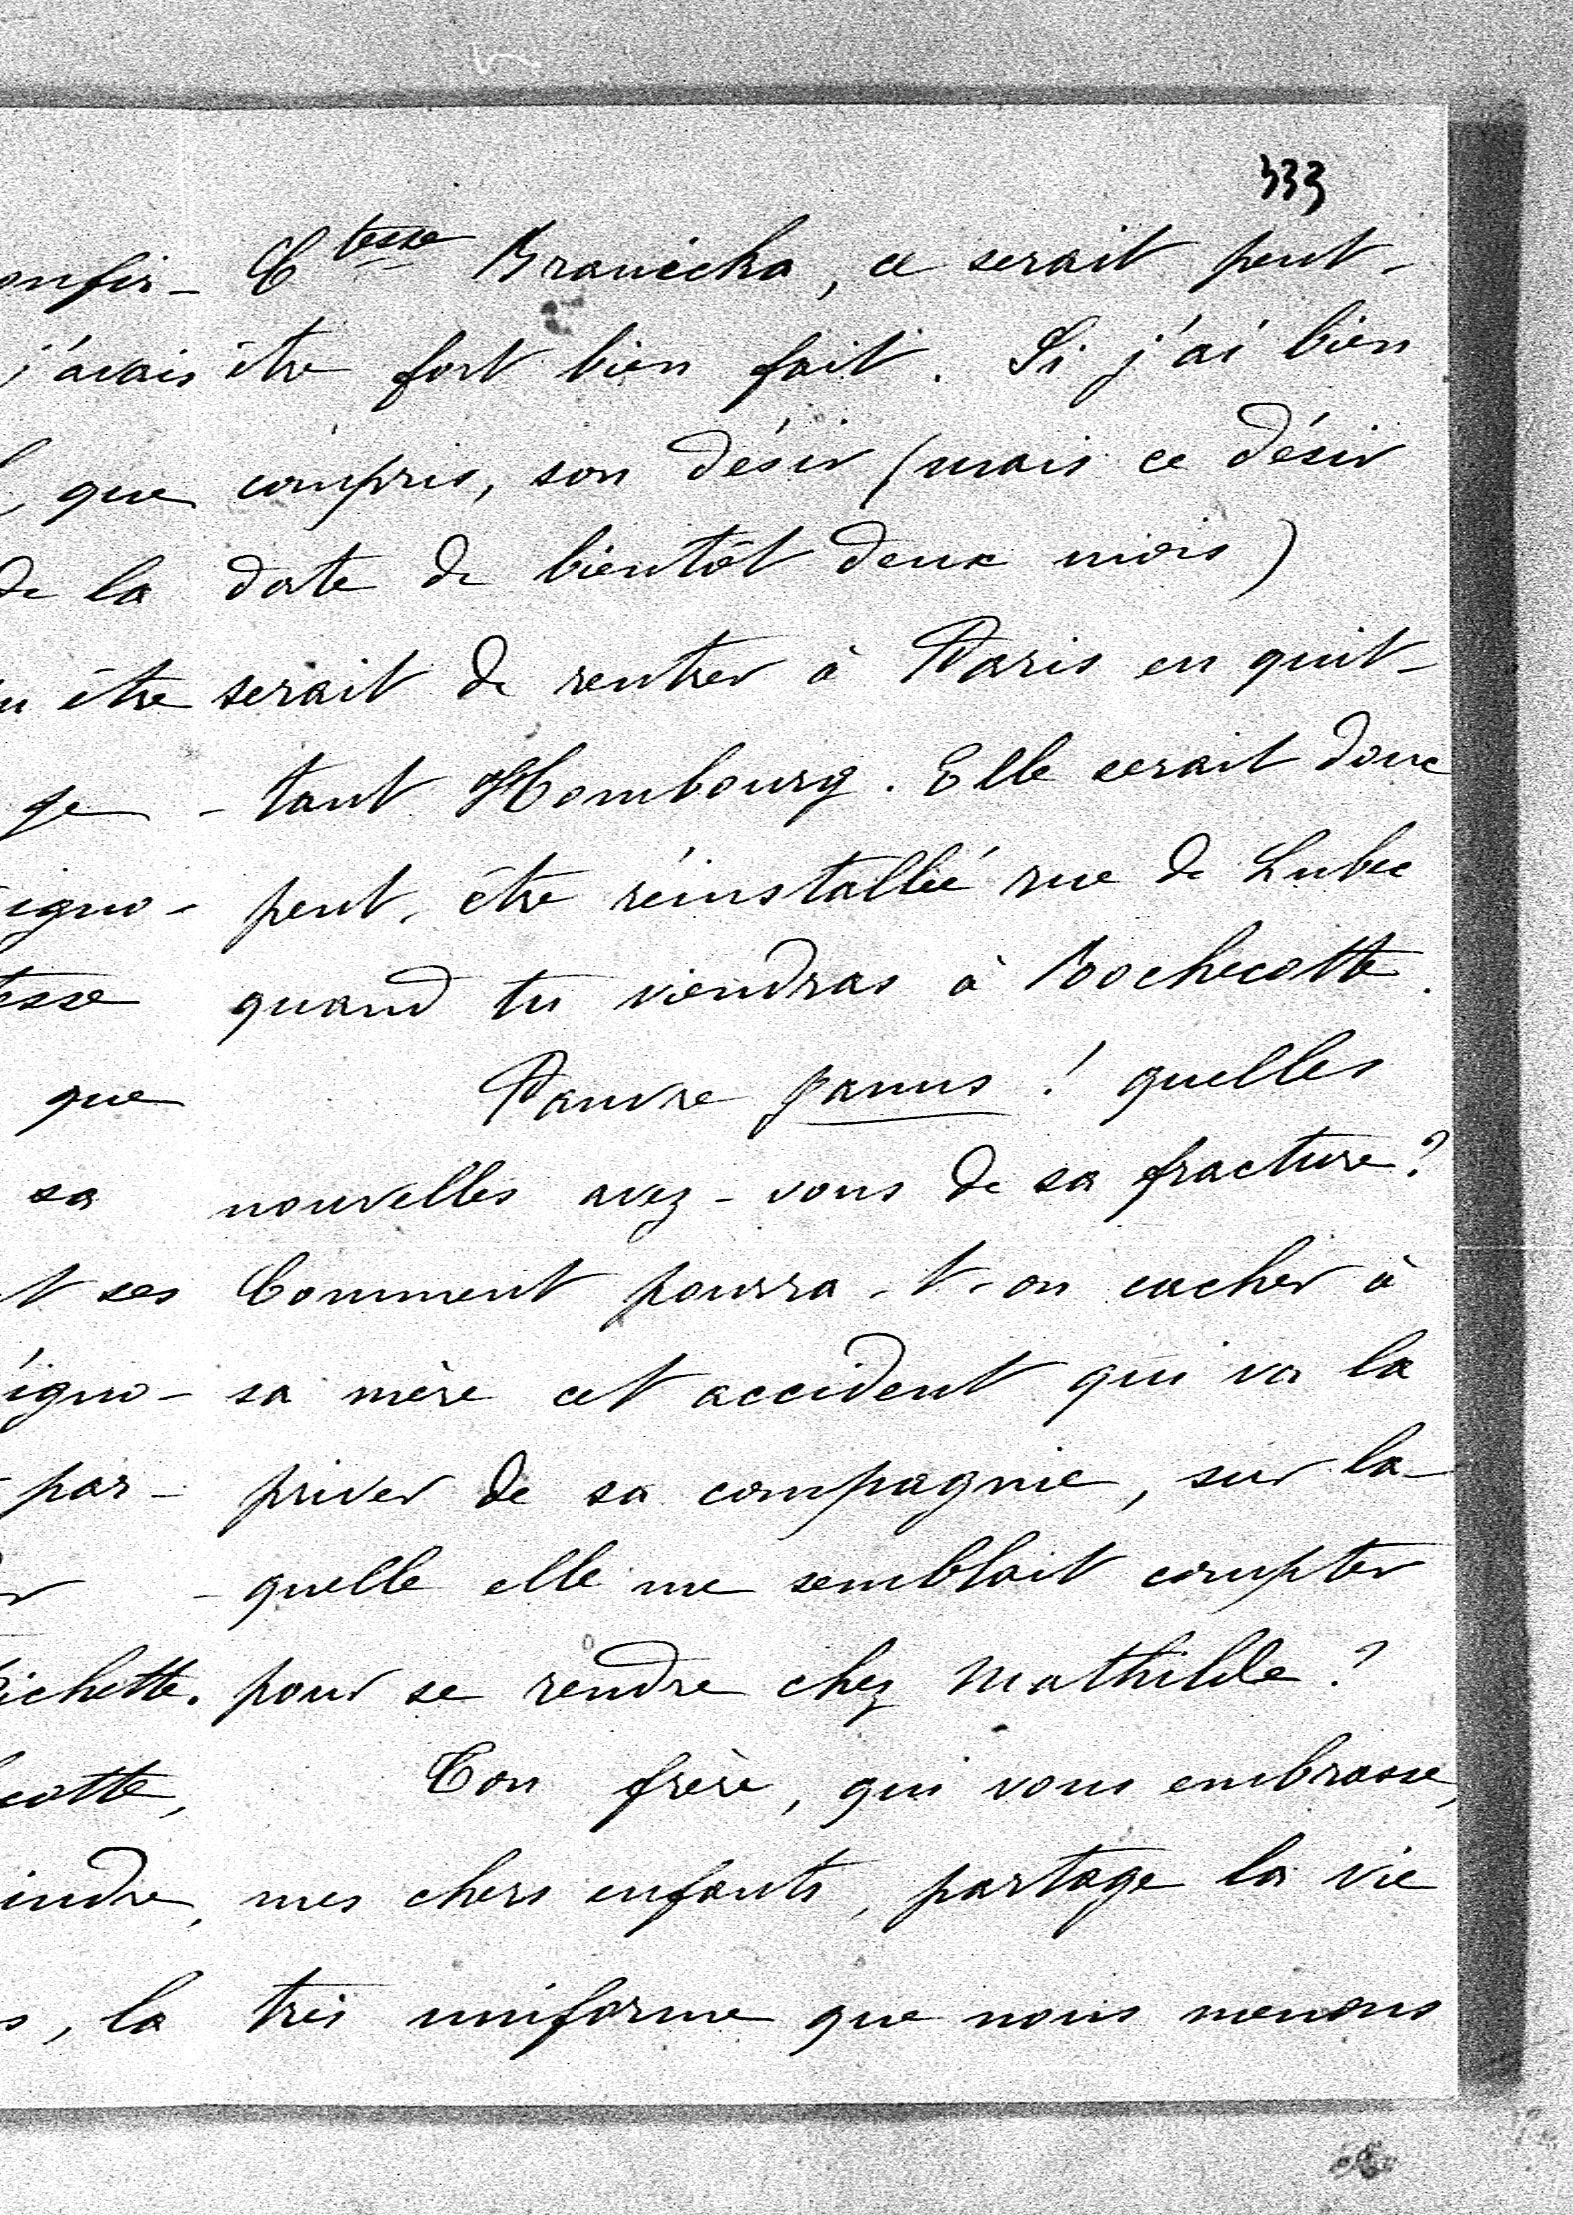 333
Ctesse Branicka, ce serait peut-
être fort bien fait. Si j'ai bien
compris, son désir (mais ce désir
date de bientôt deux mois)
serait de rentrer à Paris en quit-
-tant Hombourg. Elle serait donc
peut-être réinstallée rue de Lubec
quand tu viendras à Rochecotte.
Pauvre Janus ! quelles
nouvelles avez-vous de sa fracture ?
Comment pourra-t-on cacher à
sa mère cet accident qui va la
priver de sa compagnie, sur la-
-quelle elle me semblait compter
pour se rendre chez Mathilde ?
Ton frère, qui vous embrasse,
mes chers enfants, partage la vie
très uniforme que nous menons
onfir-
j'avais
que
de la
être
ge
igno-
tesse
que
sa
t ses
igno-
par-
ichette.
cotte,
indre,
s, la